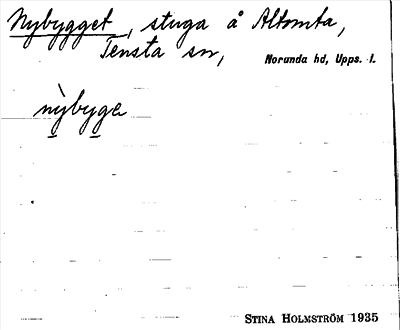 Nybygget, stuga å Altomta,
Tensta sn, Norunda hd, Upps. l.
nỳbyge
STINA HOLMSTRÖM 1935